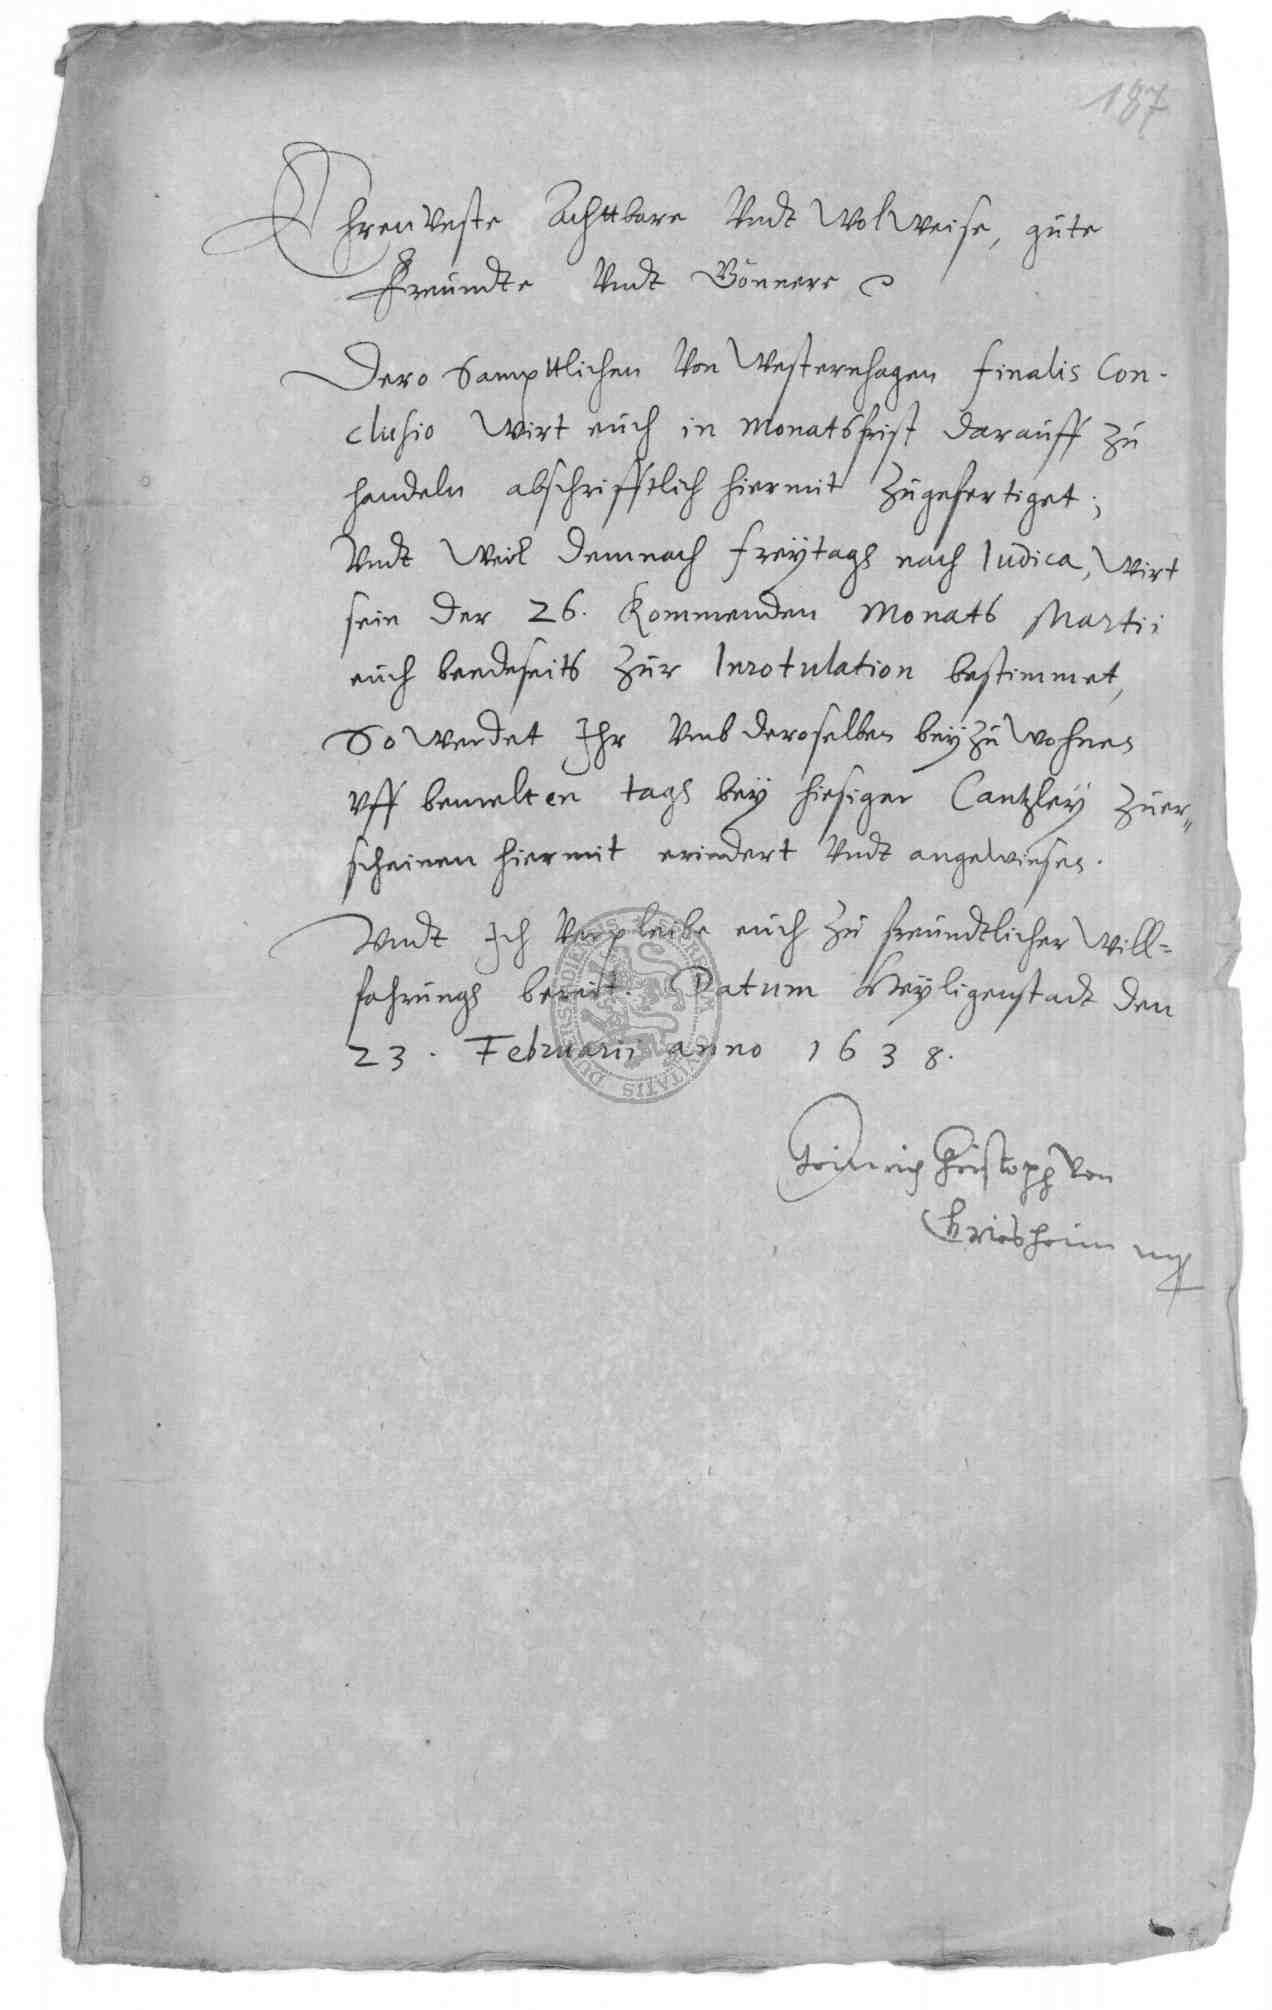 187
Ehrenveste Achttbare Vndt WolWeise, gúte
Freúndte Vndt Gönnere
Dero Sampttlichen Von Westernhagen finalis Con-
clusio Wirt eúch in Monatsfrist daraúff zú
handeln abschrifftlich hiermit zúgefertiget;
Vndt Weil demnach freÿtags nach Iudica, Wirt
sein der 26. Kommenden Monats Martii
eúch beedeseits zúr Inrotulation bestimmet,
So Werdet Ihr Vmb deroselben beÿzúWohnen
Vff bemelten tags beÿ hiesiger Cantzleÿ zúer„
scheinen hiermit erindert Vndt angewiesen.
Vndt Ich Verpleibe eúch zú freúndtlicher Will=
fahrúngs bereit. Datum Heÿligenstadt den
23. Februarii anno 1638.
Heinrich Christoph Von
Griesheim mp